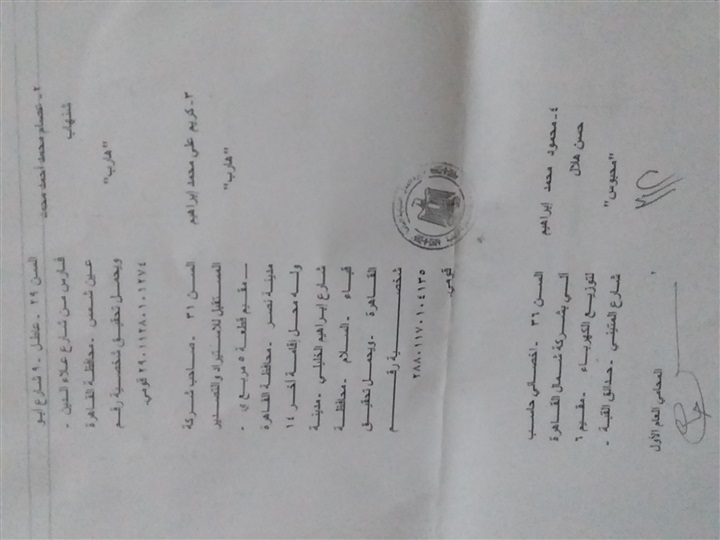 ٢- عصام محمد أحمد محمد
شنهاب
"هارب"
السن ٢٩ - عاطل - ٩ شارع ابو
فارس من شارع علاء الدين -
عين شمس - محافظة القاهرة
ويحمل تحقيق شخصية رقم
٢٩٠٠١١٢٨٠١٠١٢٧٤ قومى.
٣- كريم على محمد إبراهيم
"هارب"
السن ٣١ - صاحب شركة
المستقبل للاستيراد والتصدير
- مقيم قطعة ٥ مربع ى -
مدينة نصر - محافظة القاهرة
وله محل إقامة آخر ١٤
شارع إبراهيم - مدينة
قباء - السلام - محافظة
القاهرة - ويحمل تحقيق
شخصية رقم
٢٨٨٠١١٧٠١٠٤١٣٥
قومى.
٤- محمود محمد إبراهيم
حسن هلال
"محبوس"
السن ٣٦ - اخصائي حاسب
آلى بشركة شمال القاهرة
لتوزيع الكهرباء - مقيم ٦
شارع - حدائق القبة -
المحامى العام الأول